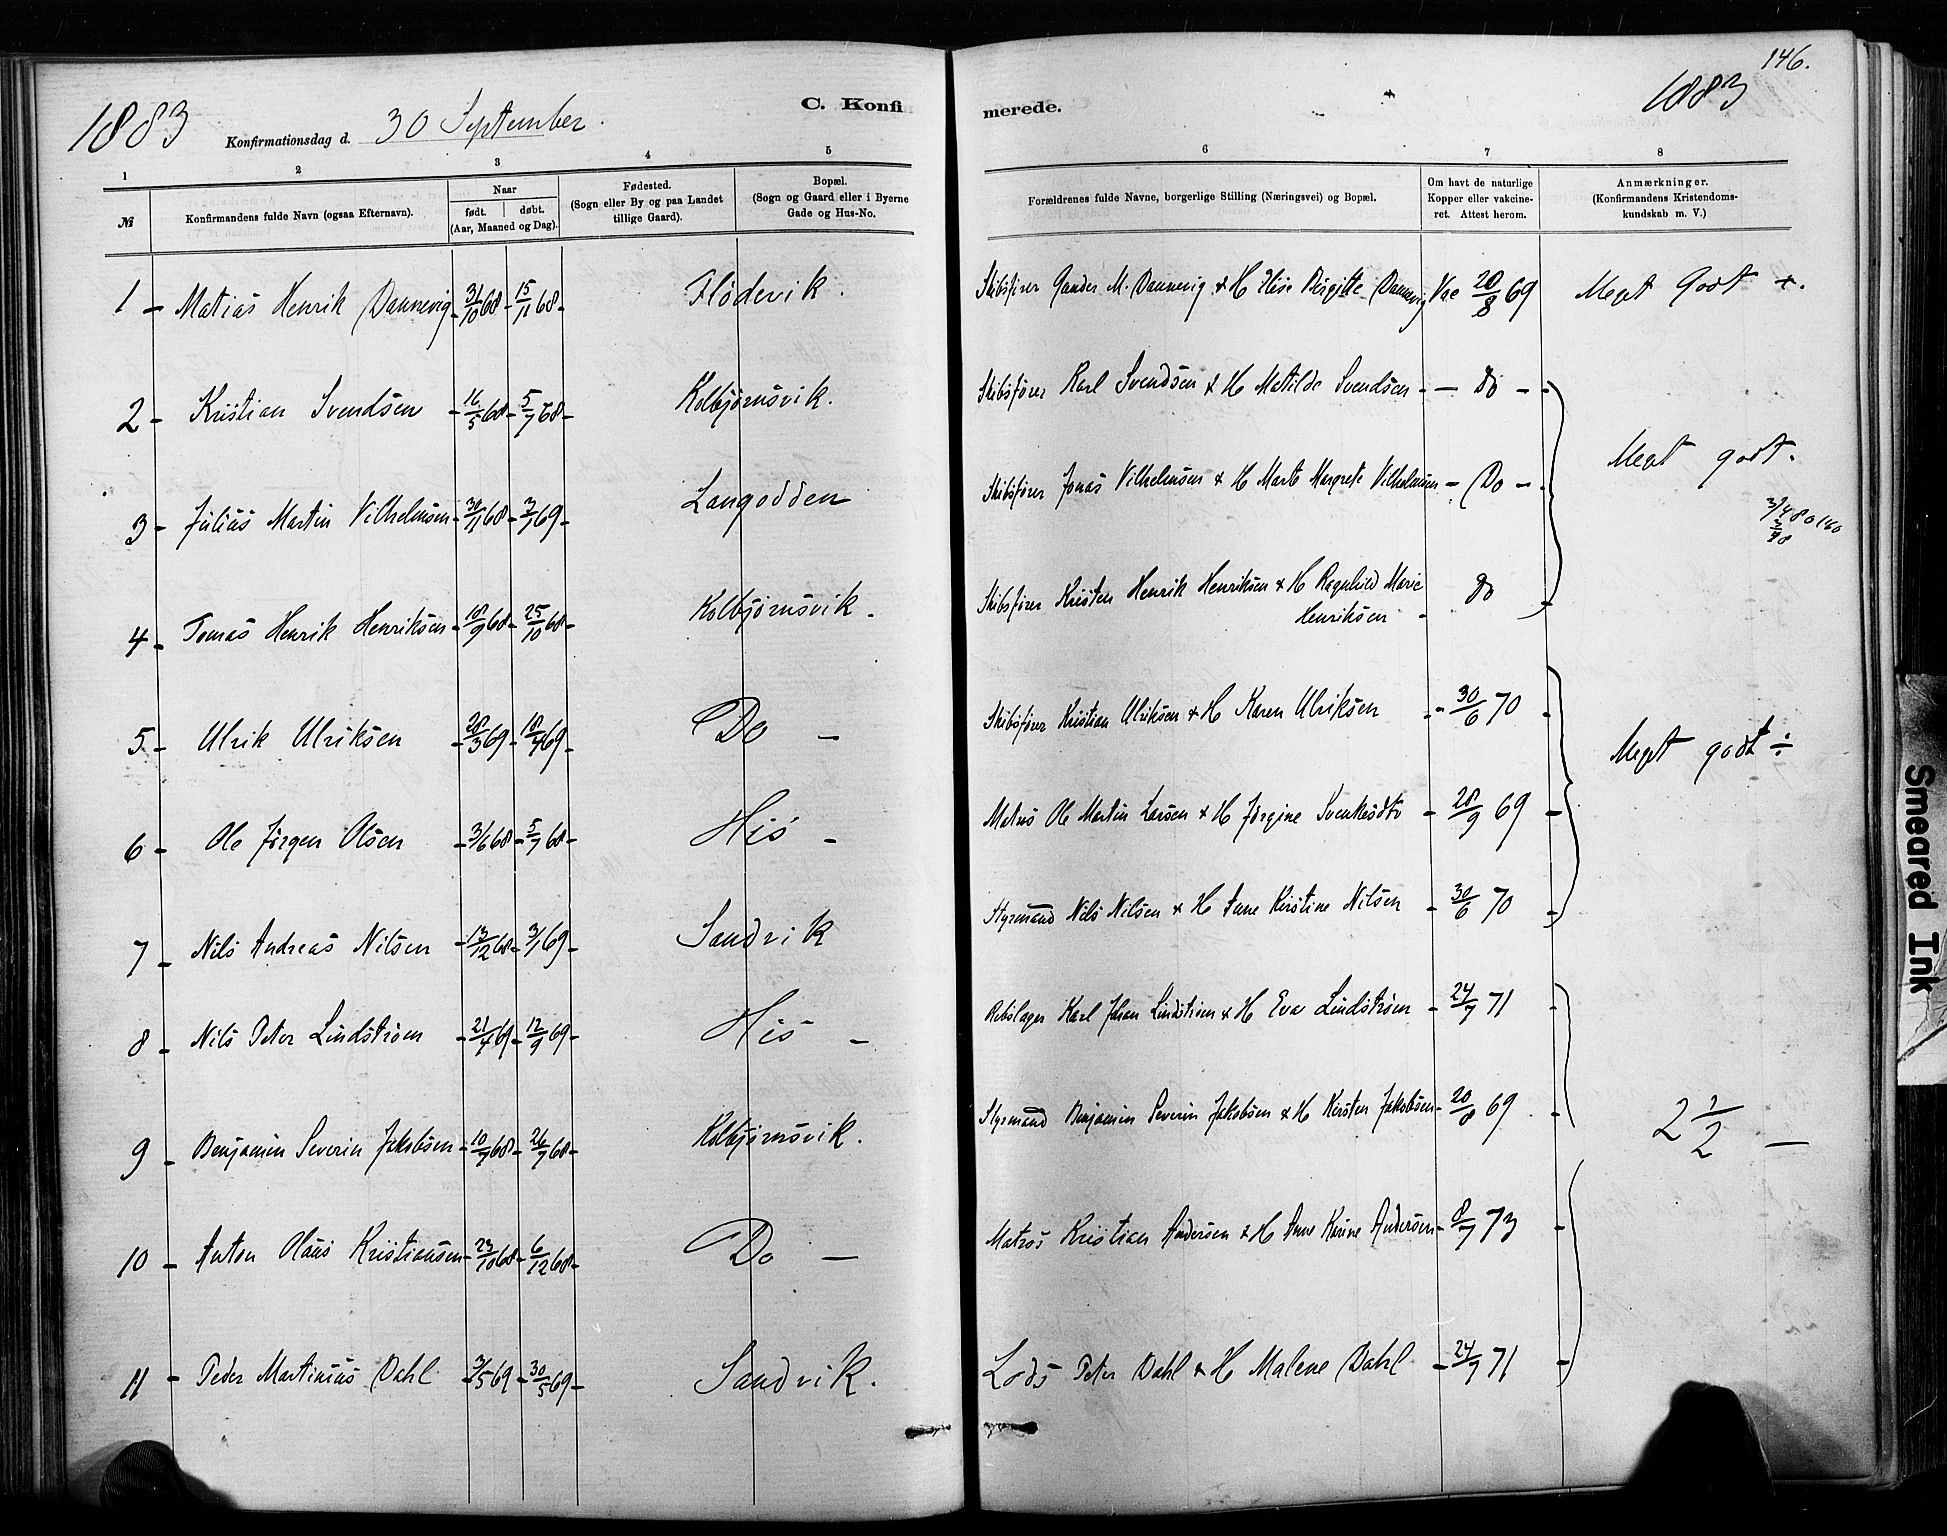 146.
1883
Konfirmationsdag d. 30 September.
C. Konfi
merede.
1883
1 2 3 4 5
6 7 8
№
Konfirmandens fulde Navn (ogsaa Efternavn).
Naar
født. døbt.
(Aar, Maaned og Dag).
Fødested.
(Sogn eller By og paa Landet
tillige Gaard).
Bopæl.
(Sogn og Gaard eller i Byerne
Gade og Hus-No.
Forældrenes fulde Navne, borgerlige Stilling (Næringsvei) og Bopæl.
Om havt de naturlige
Kopper eller vakcine-
ret. Attest herom.
Anmærkninger.
(Konfirmandens Kristendoms-
kundskab m. V.)
1 - Matias Henrik Dannevig - 31/10 68 - 15/11 68 - Flødevik. Skibsfører Gunder M. Dannevig & H Elise Birgitte Dannevig Vac 28/8 69 Meget Godt +.
2 - Kristian Svendsen - 16/5 68 - 5/7 68 - Kolbjørnsvik. Skibsfører Karl Svendsen & H Matilde Svendsen - - Do - -
Meget godt.
3 - Julius Martin Vilhelmsen - 30/11 68 - 3/1 69 - Langodden Skibsfører Jonas Vilhelmsen & H Marte Margrete Vilhelmsen - Do -
4 - Tomas Henrik Henriksen - 18/9 68 - 25/10 68 - Kolbjørnsvik - Skibsfører Kristen Henrik Henriksen & H Ragnhild Marie
Henriksen - Do -
5 - Ulrik Ulriksen - 28/3 69 - 18/4 69 - Do - Skibsfører Kristian Ulriksen & H Karen Ulriksen - 30/6 70 -
Meget godt ÷
6 - Ole Jørgen Olsen - 3/6 68 - 5/7 68 - His - Matros Ole Martin Larsen & H Jørgine - 28/9 69 -
7 - Nils Andreas Nilsen - 13/12 68 - 3/1 69 - Sandvik Styrmand Nils Nilsen & H Anne Kirstine Nilsen - 30/6 70 -
8 - Nils Peter Lindstrøm - 21/7 69 - 12/9 69 - His - Rebslager Karl Johan Lindstrøm & H Eva Lindstrøm - 24/7 71 -
9 - Benjamin Severin Jakobsen - 10/7 68 - 26/7 68 - Kolbjørnsvik. Styrmand Benjamin Severin Jakobsen & H Kirsten Jakobsen - 20/8 69 -
2 1/2 -
10 - Anton Olaus Kristiansen - 23/10 68 - 6/12 68 - Do - Matros Kristian Andersen & H Anne Karine Andersen - 8/7 73 -
11 - Peder Martinius Dahl - 3/5 69 - 30/5 69 - Sandvik. Lods Peter Dahl & H Malene Dahl - 24/7 71 -
Smeared Ink